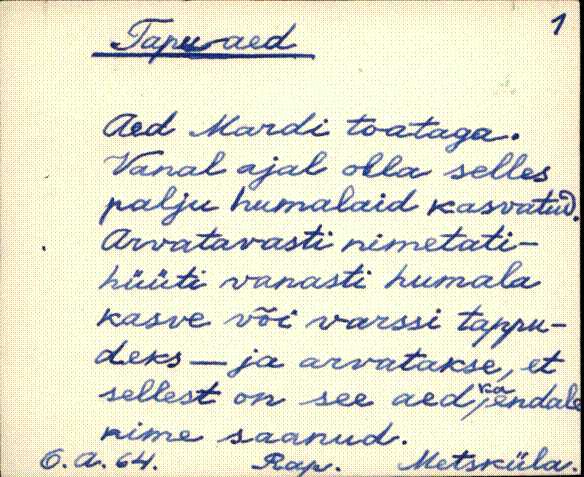 1
Tapu-aed
Aed Mardi toataga.
Vanal ajal olla selles
palju humalaid kasvatud.
Arvatavasti nimetati-
hüüti vanasti humala
kasve või varssi tappu-
deks – ja arvatakse, et
sellest on see aed ka endale
nime saanud.
O.A.64. Rap. Metsküla.